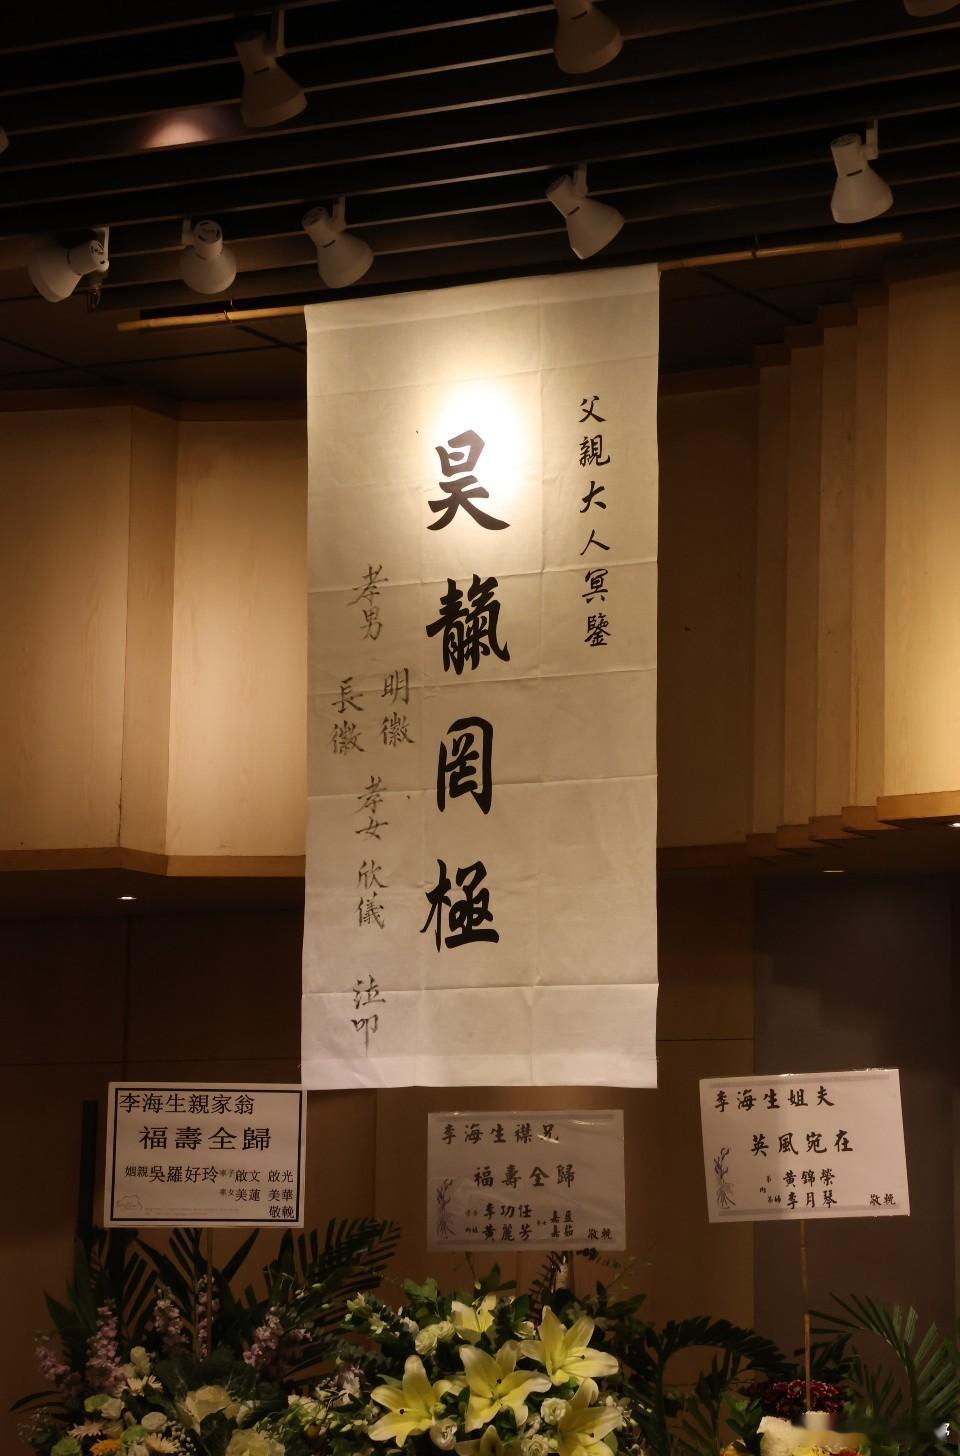 父親大人冥鑒
昊靝罔極
孝男
明徽
長徽
孝女欣儀
泣叩
李海生親家翁
福壽全歸
姻親吳羅好玲 孝子啟文 啟光
孝女美蓮 美華
敬輓
李海生襟兄
福壽全歸
李功任
黃麗芳
嘉
嘉茹
敬輓
李海生姐夫
英風宛在
內弟黃錦榮
弟婦李月琴
敬輓